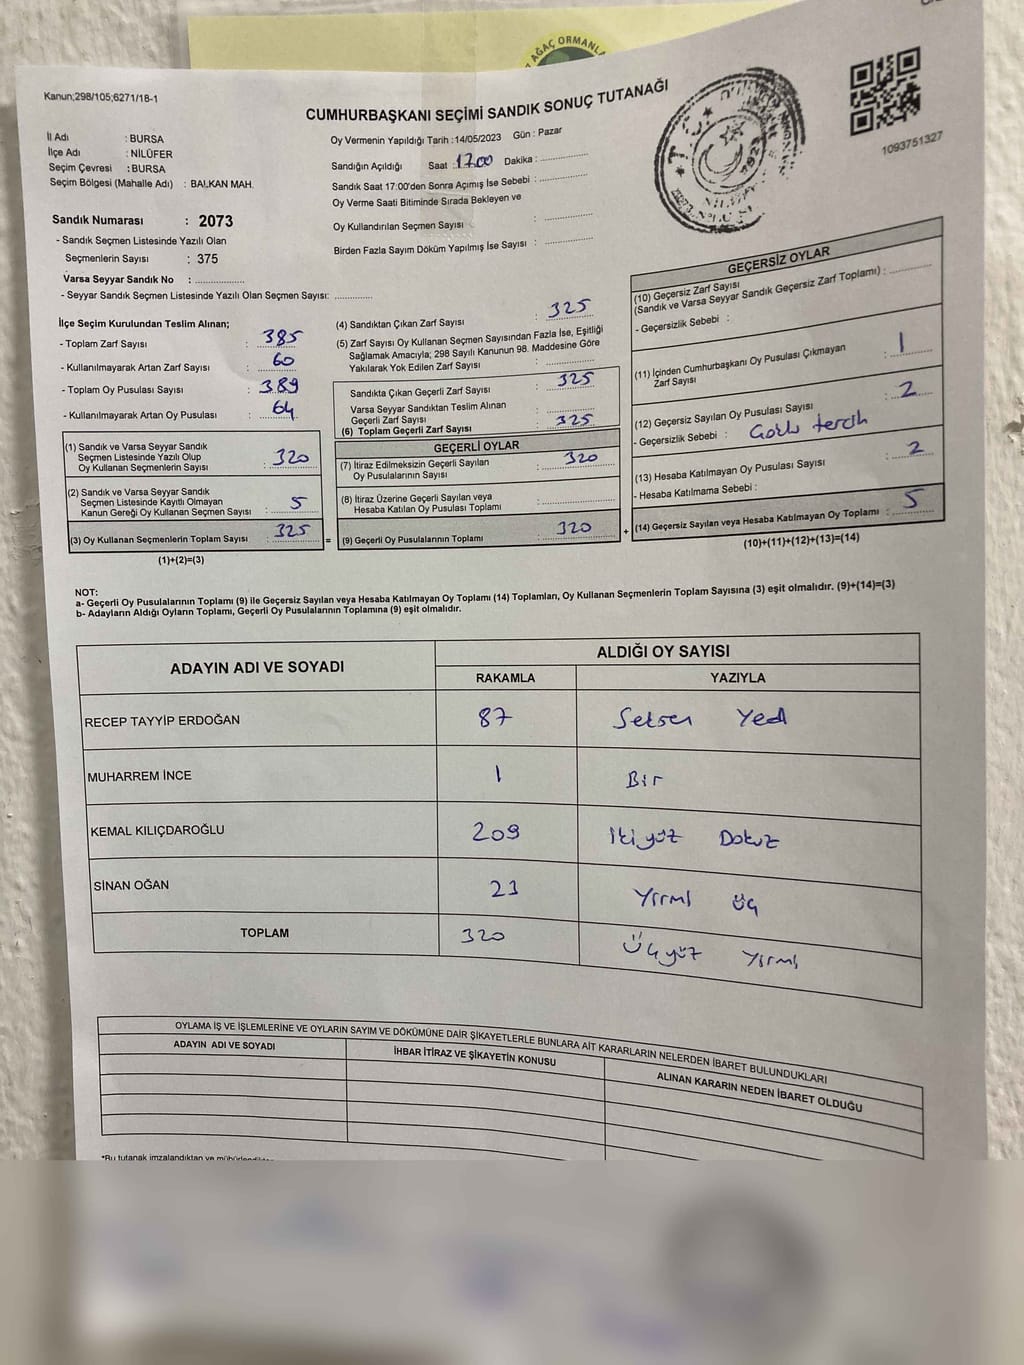 AĞAÇ ORMANLA
Kanun;298/105;6271/18-1
CUMHURBAŞKANI SEÇİMİ SANDIK SONUÇ TUTANAĞI
1093751327
İl Adı : BURSA
İlçe Adı : NİLÜFER
Seçim Çevresi : BURSA
Seçim Bölgesi (Mahalle Adı) : BALKAN MAH.
Sandık Numarası : 2073
- Sandık Seçmen Listesinde Yazılı Olan
Seçmenlerin Sayısı : 375
Varsa Seyyar Sandık No : ..................
- Seyyar Sandık Seçmen Listesinde Yazılı Olan Seçmen Sayısı: ..............
Oy Vermenin Yapıldığı Tarih :14/05/2023 Gün : Pazar
Sandığın Açıldığı Saat : 17.00 Dakika : ..................
Sandık Saat 17:00'den Sonra Açımış İse Sebebi : ..................
Oy Verme Saati Bitiminde Sırada Bekleyen ve
Oy Kullandırılan Seçmen Sayısı : ..................
Birden Fazla Sayım Döküm Yapılmış İse Sayısı : ..................
T.C.
NİLÜFER
İlçe Seçim Kurulundan Teslim Alınan;
- Toplam Zarf Sayısı : 385
- Kullanılmayarak Artan Zarf Sayısı : 60
- Toplam Oy Pusulası Sayısı : 389
- Kullanılmayarak Artan Oy Pusulası : 64
(1) Sandık ve Varsa Seyyar Sandık
Seçmen Listesinde Yazılı Olup
Oy Kullanan Seçmenlerin Sayısı : 320
(2) Sandık ve Varsa Seyyar Sandık
Seçmen Listesinde Kayıtlı Olmayan
Kanun Gereği Oy Kullanan Seçmen Sayısı : 5
(3) Oy Kullanan Seçmenlerin Toplam Sayısı : 325
(1)+(2)=(3)
=
(4) Sandıktan Çıkan Zarf Sayısı : 325
(5) Zarf Sayısı Oy Kullanan Seçmen Sayısından Fazla İse, Eşitliği
Sağlamak Amacıyla; 298 Sayılı Kanunun 98. Maddesine Göre
Yakılarak Yok Edilen Zarf Sayısı : ..................
Sandıkta Çıkan Geçerli Zarf Sayısı : 325
Varsa Seyyar Sandıktan Teslim Alınan
Geçerli Zarf Sayısı : ..................
(6) Toplam Geçerli Zarf Sayısı : 325
GEÇERLİ OYLAR
(7) İtiraz Edilmeksizin Geçerli Sayılan
Oy Pusulalarının Sayısı : 320
(8) İtiraz Üzerine Geçerli Sayılan veya
Hesaba Katılan Oy Pusulası Toplamı : ..................
(9) Geçerli Oy Pusulalarının Toplamı : 320
+
GEÇERSİZ OYLAR
(10) Geçersiz Zarf Sayısı
(Sandık ve Varsa Seyyar Sandık Geçersiz Zarf Toplamı) : ............
- Geçersizlik Sebebi :
(11) İçinden Cumhurbaşkanı Oy Pusulası Çıkmayan
Zarf Sayısı : 1
(12) Geçersiz Sayılan Oy Pusulası Sayısı : 2
- Geçersizlik Sebebi : Çoklu tercih
(13) Hesaba Katılmayan Oy Pusulası Sayısı : 2
- Hesaba Katılmama Sebebi :
(14) Geçersiz Sayılan veya Hesaba Katılmayan Oy Toplamı : 5
(10)+(11)+(12)+(13)=(14)
NOT:
a- Geçerli Oy Pusulalarının Toplamı (9) ile Geçersiz Sayılan veya Hesaba Katılmayan Oy Toplamı (14) Toplamları, Oy Kullanan Seçmenlerin Toplam Sayısına (3) eşit olmalıdır. (9)+(14)=(3)
b- Adayların Aldığı Oyların Toplamı, Geçerli Oy Pusulalarının Toplamına (9) eşit olmalıdır.
ADAYIN ADI VE SOYADI ALDIĞI OY SAYISI
RAKAMLA YAZIYLA
RECEP TAYYİP ERDOĞAN 87 Seksen Yedi
MUHARREM İNCE 1 Bir
KEMAL KILIÇDAROĞLU 209 İkiyüz Dokuz
SİNAN OĞAN 23 Yirmi üç
TOPLAM 320 Üçyüz Yirmi
OYLAMA İŞ VE İŞLEMLERİNE VE OYLARIN SAYIM VE DÖKÜMÜNE DAİR ŞİKAYETLERLE BUNLARA AİT KARARLARIN NELERDEN İBARET BULUNDUKLARI
ADAYIN ADI VE SOYADI İHBAR İTİRAZ VE ŞİKAYETİN KONUSU ALINAN KARARIN NEDEN İBARET OLDUĞU
*Bu tutanak imzalandıktan ve